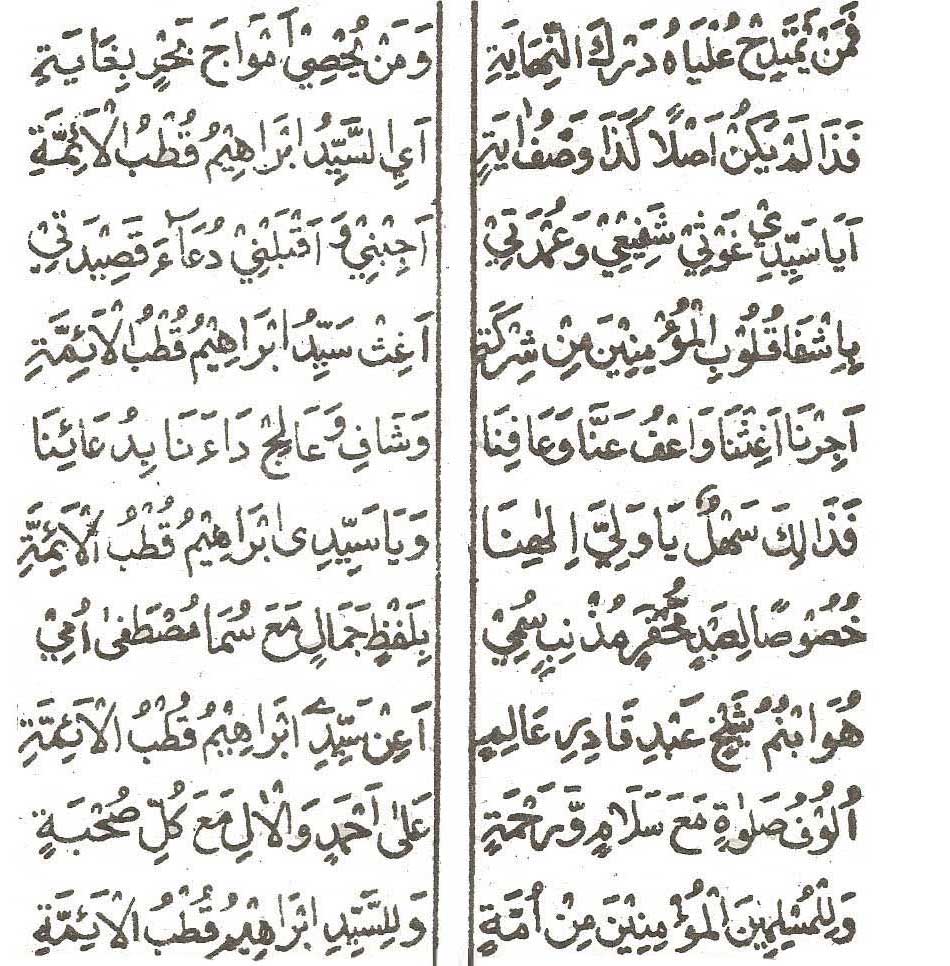 فَمَنْ يَمْتَدِحْ عُلْيَاهُ دَرْكَ النِّهَايَةِ وَمَنْ يُحْصِيْ اَمْوَاجَ بَحْرٍ بِغَايَةٍ
فَذَا لَمْ يَكُنْ اَصْلًا كَذَا وَصْفُ ايَةٍ اَيِ السَّيِّدُ ابْرَاهِيْمُ قُطْبُ الْاَئِمَّةِ
اَيَا سَيِّدِيْ غَوْثِيْ شَفِيْعِيْ وَعُمْدَتِيْ اَجِبْنِيْ وَاقْبَلْنِيْ دُعَاءَ قَصِيْدَتِيْ
يَا شِفَا قُلُوْبِ الْمُؤْمِنِيْنَ مِنْ شِرْكَةٍ اَغِثْ سَيِّدُ ابْرَاهِيْمُ قُطْبُ الْاَئِمَّةِ
اَجِرْنَا اَغِثْنَا وَاعْفُ عَنَّا وَعَافِنَا وَشَافِ وَعَالِجْ دَاءَنَا بِدُعَائِنَا
فَذَالِكَ سَهْلٌ يَا وَلِيَّ اِلٰهِنَا وَيَا سَيِّدِى ابْرَاهِيْمُ قُطْبُ الْاَئِمَّةِ
خُصُوْصًا لِعَبْدٍ مُحْقَرٍ مُذْنِبٍ سُمِيْ بِلَفْظِ جَمَالٍ مَعَ سُمَا مُصْطَفٰى اُمِّيْ
هُوَ ابْنُ شَيْخِ عَبْدِ قَادِرِ عَالِمٍ اَعِنْ سَيِّدِيْ ابْرَاهِيْمُ قُطْبُ الْاَئِمَّةِ
اُلُوْفُ صَلٰوةٍ مَعَ سَلَامٍ وَّرَحْمَةٍ عَلٰى اَحْمَدٍ وَالْاٰلِ مَعَ كُلِّ صُحْبَةٍ
وَلِلْمُسْلِمِيْنَ الْمُؤْمِنِيْنَ مِنْ اُمَّةٍ وَلِلسَّيِّدِ ابْرَاهِيْمُ قُطْبُ الْاَئِمَّةِ